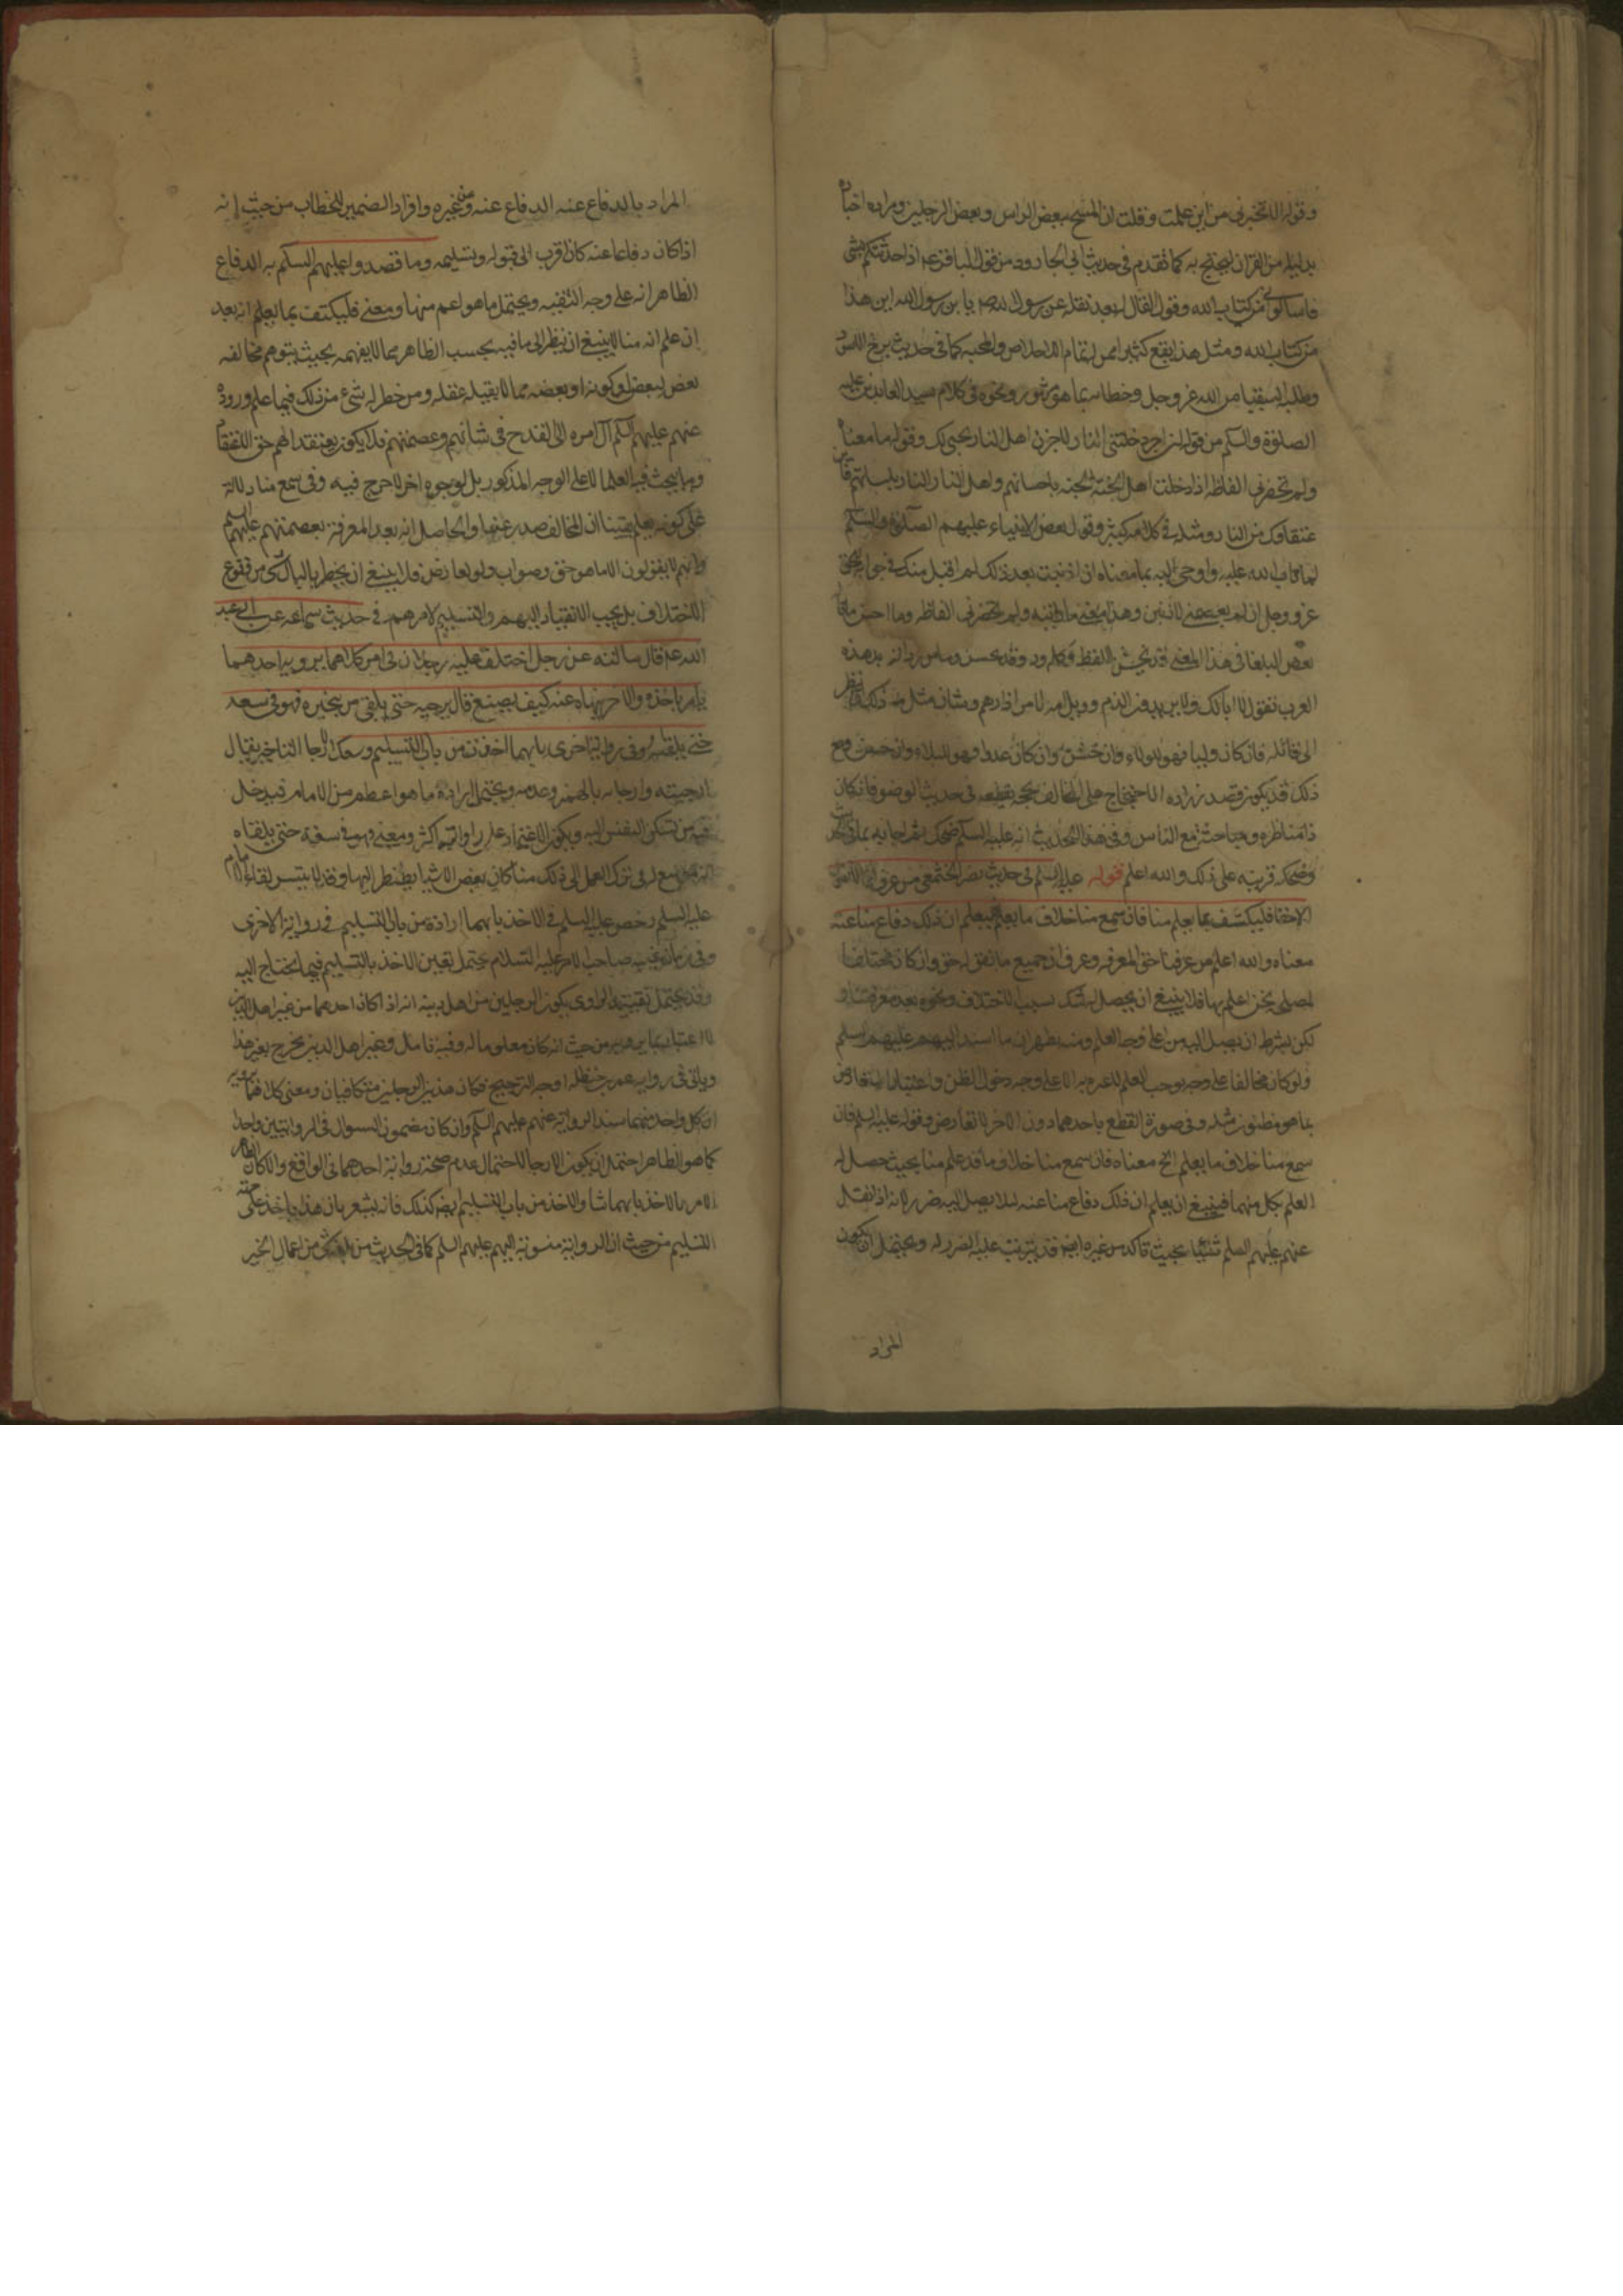 وقوله الا تخبرني من اين علمت وقلت ان المسح ببعض الراس وبعض الرجلين ومراده اخباره
بدليله من القران ليحتج به كما تقدم في حديث ابي الجارود من قول الباقر عه اذا حدثتكم بشي
فاسألوني من كتاب الله وقول القائل له بعد نقله عن رسول الله صم يا بن رسول الله اين هذا
من كتاب الله ومثل هذا يقع كثيرا ممن له تمام الاخلاص والمحبه كما في حديث برخ الاسود
وطلبه السقيا من الله عز وجل وخطابه بما هو مشهور ونحوه في كلام سيد العابدين عليه
الصلوة والسلم من قوله لئن ادخلتني النار لاخبرن اهل النار بحبي لك وقوله ما معناه
ولم تحضرني الفاظه اذا دخلت اهل الجنة الجنه باحسانهم واهل النار النار
عتقاؤك من النار ومثله في كلامه كثير وقول بعض الانبياء عليهم الصلوة والسلم
لما تاب الله عليه واوحى اليه بما معناه ان اذنبت بعد ذلك لم اقبل منك في جوابه
عز وجل لئن لم تعصمني لاذنبن وهذا معنى ما ولم تحضرني الفاظه وما احسن ما قال
بعض البلغا في هذا المعنى قد يخش اللفظ وكله ود وقد يحسن وما من رداله بد هذه
العرب تقول لا ابا لك ولا يريدون الذم وويل امه لامر اذا دهم وشان مثل ذلك ان ينظر
الى قائله فان كان وليا فهو الولاء وان خشن وان كان عدوا فهو البلاء وان حسن ومع
ذلك قد يكون قصد زراره الاحتجاج على المخالف بحجه يقطعه في حديث الوضو فانه كان
ذا مناظره ومباحثة مع الناس وفي هذا الحديث انه عليه السلم ضحك ثم اجابه بما في
وضحكه قرينه على ذلك والله اعلم قوله عليه السلم في حديث نصر الخثعمي من عرف انا لا نقول
الا حقا فليكتف بما يعلم منا فان سمع منا خلاف ما يعلم فليعلم ان ذلك دفاع منا عنه
معناه والله اعلم من عرفنا حق المعرفه وعرف ان جميع ما نقوله حق وان كان مختلفا
لمصلحه نحن اعلم بها فلا ينبغي ان يحصل له شك بسبب الاختلاف ونحوه بعد معرفتنا و
لكن بشرط ان يصل اليه من على وجه العلم ومنه يظهر ان ما اسند اليهم عليهم السلم
ولو كان مخالفا على وجه يوجب العلم لا عبره به الا على وجه دخول الظن واعتباره اذا تعارض
بما هو مظنون مثله وفي صورة القطع باحدهما دون الاخر لا تعارض وقوله عليه السلم فان
سمع منا خلاف ما يعلم الخ معناه فان سمع منا خلاف ما قد علم منا بحيث حصل له
العلم بكل منهما فينبغي ان يعلم ان ذلك دفاع منا عنه لئلا يصل اليه ضرر لانه اذا نقل
عنهم عليهم السلم شيئا بحيث تاكد من غيره ايضا قد يترتب عليه الضرر له ويحتمل ان يكون
المراد
المراد بالدفاع عنه الدفاع عنه وعن غيره وافراد الضمير للخطاب من حيث انه
اذا كان دفاعا عنه كان اقرب الى قبوله وتسليمه وما قصدوا عليهم السلم به الدفاع
الظاهر انه على وجه التقيه ويحتمل ما هو اعم منها ومعنى فليكتف بما يعلم انه بعد
ان علم انه منا لا ينبغي ان ينظر الى ما فيه بحسب الظاهر مما لا يفهمه بحيث يتوهم مخالفه
بعض لبعض او كونه او بعضه مما لا يقبله عقله ومن خطر له شيء من ذلك فيما علم وروده
عنهم عليهم السلم آل امره الى القدح في شانهم وعصمتهم فلا يكون معتقدا لهم حق الاعتقاد
وما يبحث فيه العلما لا على الوجه المذكور بل لوجوه اخر لا حرج فيه وفي سمع منا دلالة
على كونه يعلم يقينا ان المخالف صدر عنها والحاصل انه بعد المعرفة بعصمتهم عليهم السلم
وانهم لا يقولون الا ما هو حق وصواب ولو تعارض فلا ينبغي ان يخطر بالبال شي من وقوع
الاختلاف بل يجب الانقياد اليهم والتسليم لامرهم في حديث سماعه عن ابي عبد
الله عه قال سالته عن رجل اختلف عليه رجلان في امر كلاهما يرويه احدهما
يامر باخذه والاخر ينهاه عنه كيف يصنع قال يرجيه حتى يلقى من يخبره فهو في سعه
حتى يلقاه وفي رواية اخرى بايهما اخذت من باب التسليم وسعك الارجا التاخير يقال
ارجيته وارجاته بالهمز وعدمه ويحتمل ارادة ما هو اعظم من الامام فيدخل
فيه من تسكن النفس اليه ويكون الاعتماد على راوايته اكثر ومعنى فهو في سعة حتى يلقاه
انه موسع له في ترك العمل الى ذلك منا كان بعض الاشيا يضطر اليها وقد لا يتيسر لقاء الامام
عليه السلم رخص عليه السلم في الاخذ بايهما اراده من باب التسليم في رواية الاخرى
وفي زمان غيبه صاحب الامر عليه السلام يحتمل تعيين الاخذ بالتسليم فيما يحتاج اليه
وقد يحتمل تقييد الراوي بكون الرجلين من اهل دينه انه اذا كان احدهما من غير اهل الدين
لا اعتبار بما يرويه من حيث انه كان معلوما له وفيه تامل وغير اهل الدين يخرج بغير هذا
وياتي في رواية عمر بن حنظله اوجه الترجيح فكان هذين الرجلين متكافيان ومعنى كلاهما يرويه
ان كل واحد منهما سند الرواية عنهم عليهم السلم وان كان مضمون السوال في الروايتين واحدا
كما هو الظاهر احتمل ان يكون الارجا لاحتمال عدم صحة رواية احدهما في الواقع والا كان الظاهر
الامر بالاخذ بايهما شا والاخذ من باب التسليم ايضا كذلك فانه يشعر بان هذا ياخذ على جهة
التسليم من حيث ان الرواية منسوبة اليهم عليهم السلم كما في الحديث من بلغه شي من اعمال الخير